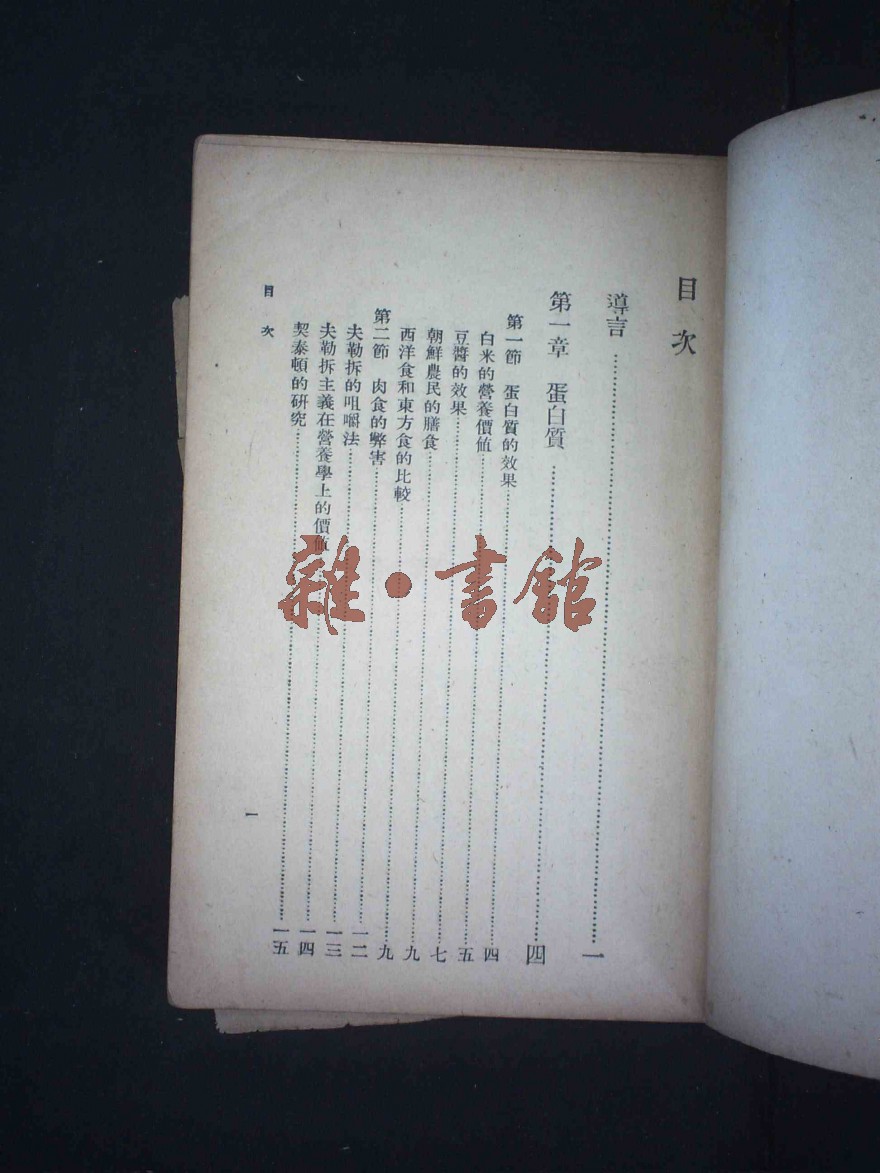 目次
導言……一
第一章 蛋白質……四
第一節 蛋白質的效果……四
白米的營養價値……五
豆醬的效果……七
朝鮮農民的膳食……九
西洋食和東方食的比較……九
第二節 肉食的弊害……一二
夫勒拆的咀嚼法……一三
夫勒拆主義在營養學上的價値……一四
契泰頓的研究……一五
目次
一
雜·書館